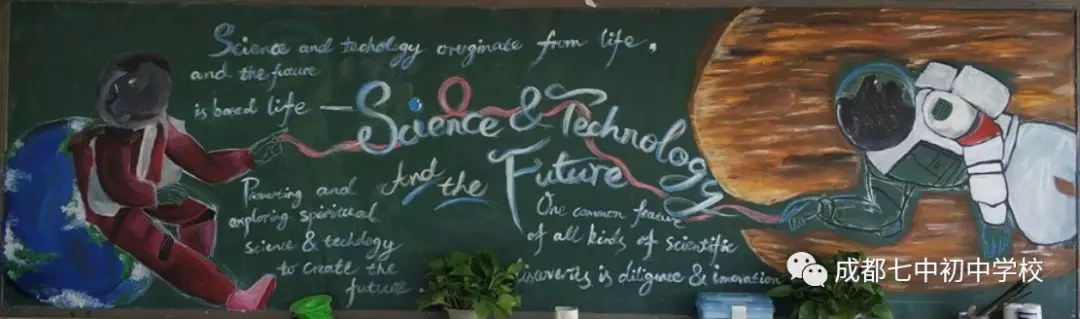 Science and techology oruginate from life,
and the fucure
is bored life —
Science & Technology
And the Future
Pioneering and
exploring spiritual
science & techdogy
to create the
future.
One common feature
of all kinds of scientific
is diligence & inovation
成都七中初中学校